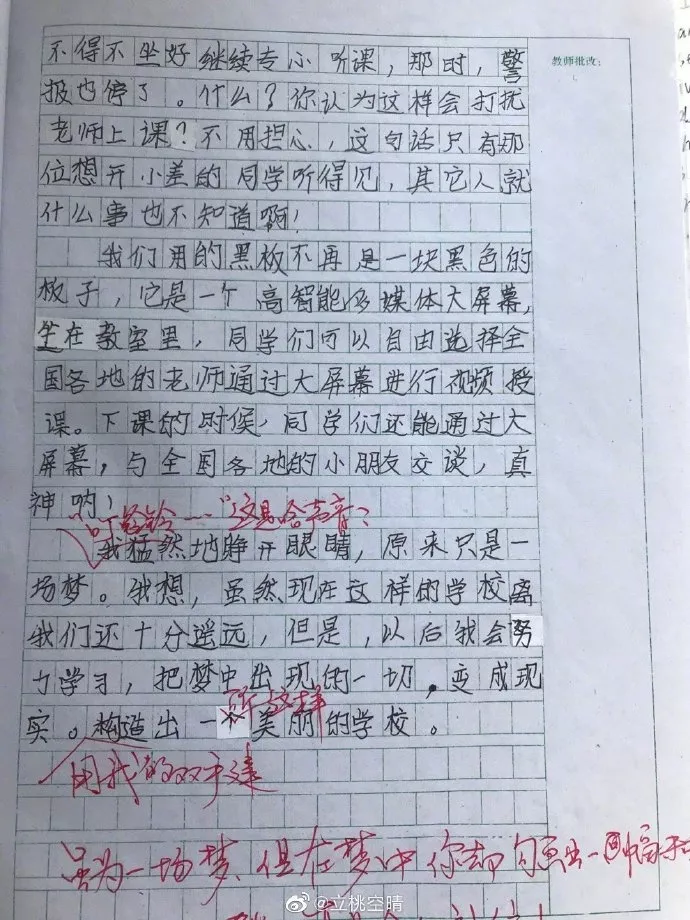 教师批改：
不得不坐好继续专心听课，那时，警
报也停了。什么？你认为这样会打扰
老师上课？不用担心，这句话只有那
位想开小差的同学听得见，其它人就
什么事也不知道啊！
我们用的黑板不再是一块黑色的
板子，它是一个高智能多媒体大屏幕，
坐在教室里，同学们可以自由选择全
国各地的老师通过大屏幕进行视频授
课。下课的时候，同学们还能通过大
屏幕，与全国各地的小朋友交谈，真
神呐！
"叮铃铃……"这是啥声音？
我猛然地睁开眼睛，原来只是一
场梦。我想，虽然现在这样的学校离
我们还十分遥远，但是，以后我会努
力学习，把梦中出现的一切，变成现
所这样
实。构造出一美丽的学校。
用我的双手建
虽为一场梦，但在梦中你却勾画出一
@立桃空晴